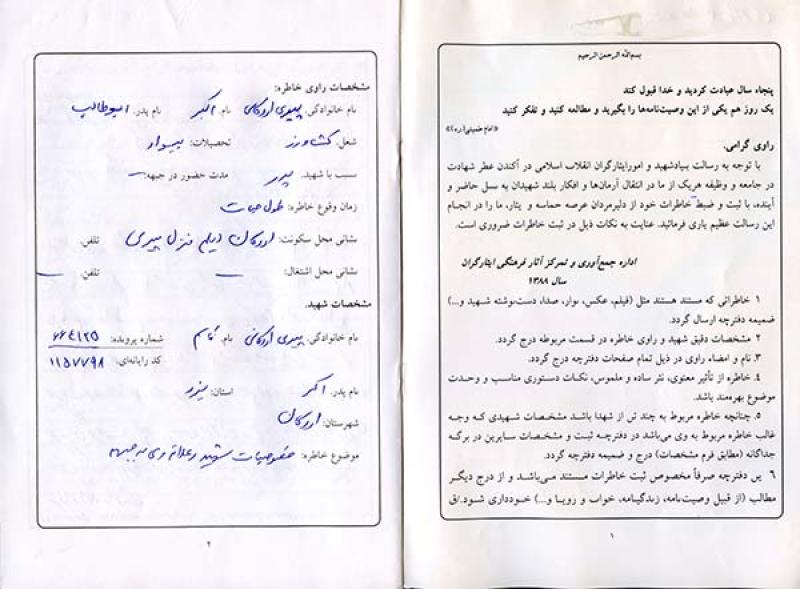 بسم‌الله الرحمن الرحیم
پنجاه سال عبادت کردید و خدا قبول کند
یک روز هم یکی از این وصیت‌نامه‌ها را بگیرید و مطالعه کنید و تفکر کنید
«امام خمینی(ره)»
راوی گرامی.
با توجه به رسالت بنیادشهید و امورایثارگران انقلاب اسلامی در آکندن عطر شهادت
در جامعه و وظیفه هریک از ما در انتقال آرمان‌ها و افکار بلند شهیدان به نسل حاضر و
آینده، با ثبت و ضبط خاطرات خود از دلیرمردان عرصه حماسه و یثار، ما را در انجام
این رسالت عظیم یاری فرمائید. عنایت به نکات ذیل در ثبت خاطرات ضروری است.
اداره جمع‌آوری و تمرکز آثار فرهنگی ایثارگران
سال ۱۳۸۹
۱ خاطراتی که مستند هستند مثل (فیلم، عکس، نوار، صدا، دست‌نوشته شهید و...)
ضمیمه دفترچه ارسال گردد.
۲ مشخصات دقیق شهید و راوی خاطره در قسمت مربوطه درج گردد.
۳. نام و امضاء راوی در ذیل تمام صفحات دفترچه درج گردد.
۴. خاطره از تأثیر معنوی، نثر ساده و ملموس، نکات دستوری مناسب و وحدت
موضوع بهره‌مند باشد.
۵. چنانچه خاطره مربوط به چند تن از شهدا باشد مشخصات شهیدی که وجه
غالب خاطره مربوط به وی می‌باشد در دفترچه ثبت و مشخصات سایرین در برگه
جداگانه (مطابق فرم مشخصات) درج و ضمیمه دفترچه گردد.
۶ ین دفترچه صرفاً مخصوص ثبت خاطرات مستند می‌باشد و از درج دیگر
مطالب (از قبیل وصیت‌نامه، زندگینامه، خواب و رویا و...) خودداری شود./ق
۱
مشخصات راوی خاطره:
نام خانوادگی: پیری اردکانی نام: اکبر نام پدر: ابوطالب
شغل: کشاورز تحصیلات: بیسواد
نسبت با شهید: پدر مدت حضور در جبهه: —
زمان وقوع خاطره: طول حیات
نشانی محل سکونت: اردکان منزل پیری تلفن:
نشانی محل اشتغال: — تلفن: —
مشخصات شهید.
نام خانوادگی: پیری اردکانی نام: شماره پرونده: ۶۶۴۱۲۵
کد رایانه‌ای: ۱۱۵۷۷۹۸
نام پدر: اکبر استان: یزد
شهرستان: اردکان
موضوع خاطره: خصوصیات شهید و علاقه وی به جبهه
۲